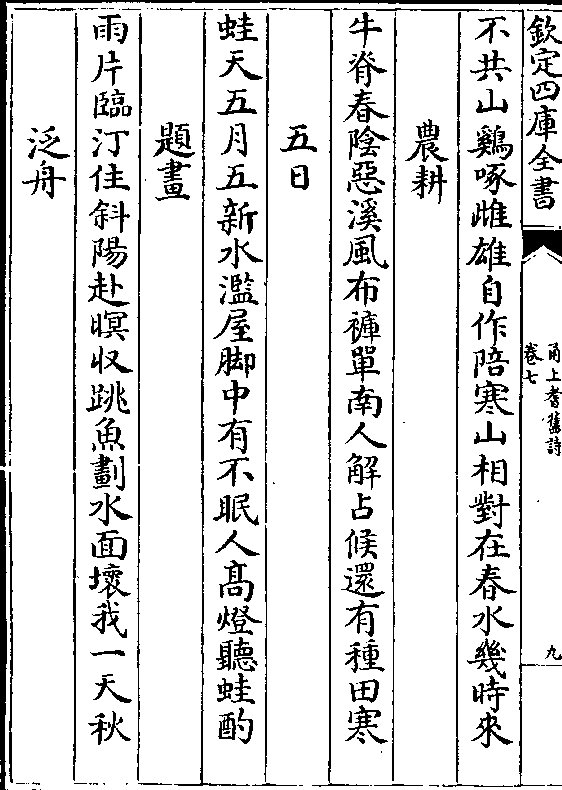 欽定四庫全書
甬上耆舊詩
卷七
九
不共山鷄啄雌雄自作陪寒山相對在春水幾時來
農耕
牛脊春陰惡溪風布褲單南人解占候還有種田寒
五日
蛙天五月五新水濫屋脚中有不眠人高燈聽蛙酌
題畫
雨片臨汀住斜陽赴暝收跳魚劃水面壞我一天秋
泛舟